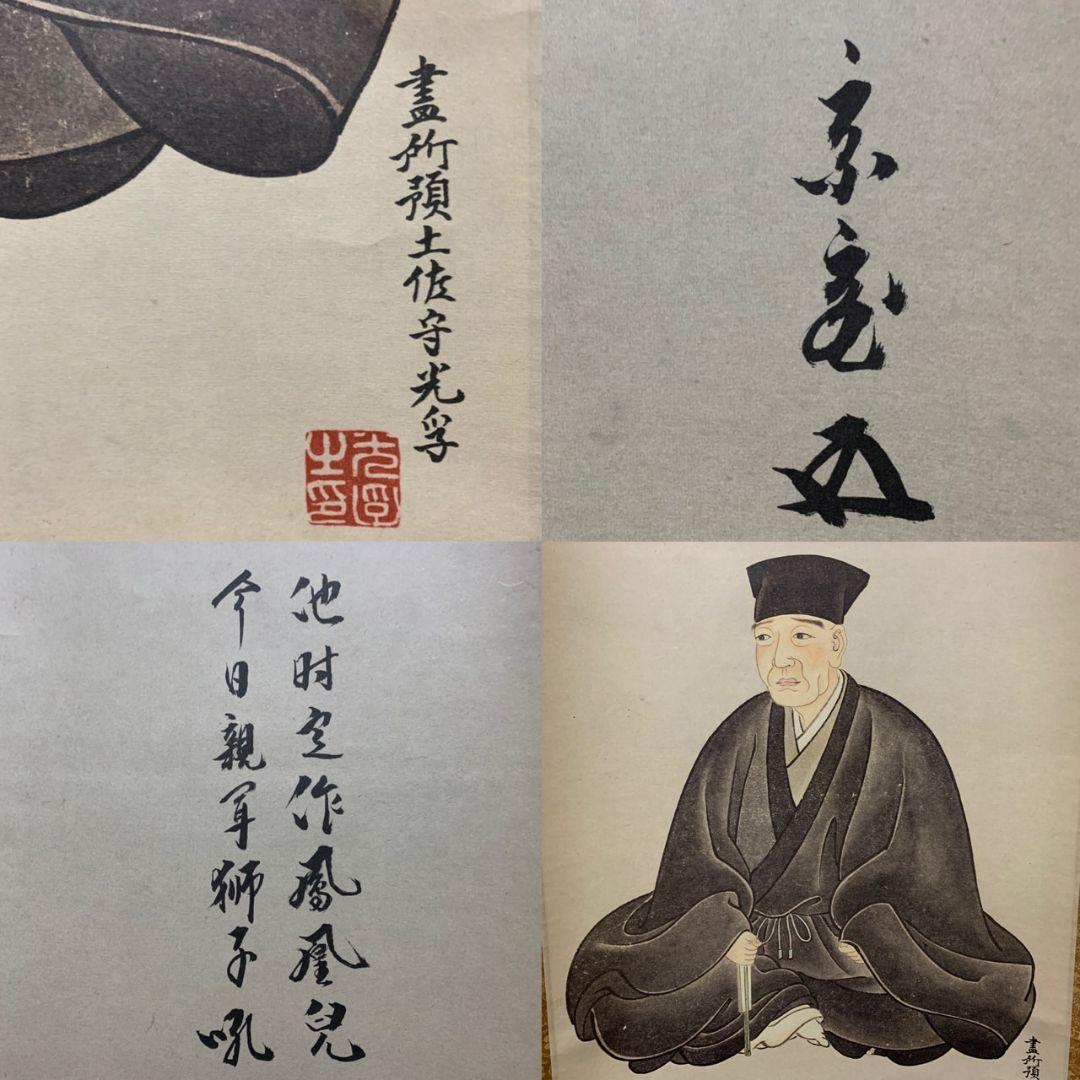 畫所預土佐守光孚
光孚
之印
他时定作鳳凰兒
今日親獅子吼
畫所預